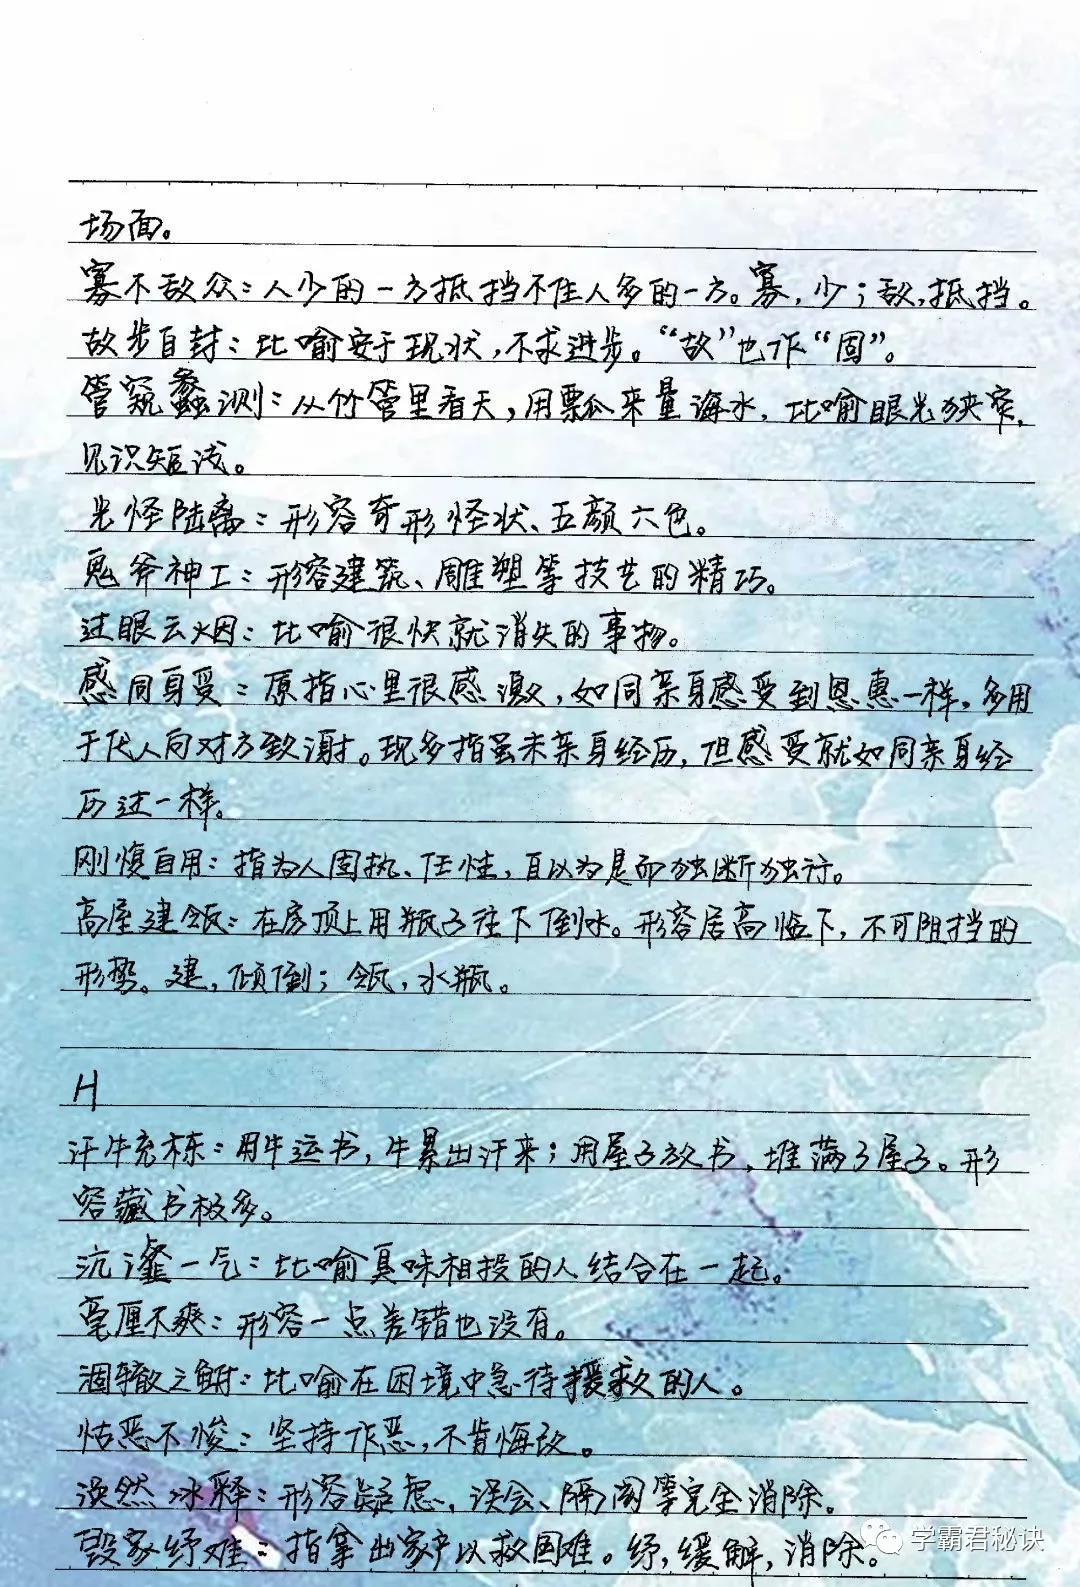 场面。
寡不敌众：人少的一方抵挡不住人多的一方。寡，少；敌，抵挡。
故步自封：比喻安于现状，不求进步。“故”也作“固”。
管窥蠡测：从竹管里看天，用瓢来量海水，比喻眼光狭窄，
见识短浅。
光怪陆离：形容奇形怪状、五颜六色。
鬼斧神工：形容建筑、雕塑等技艺的精巧。
过眼云烟：比喻很快就消失的事物。
感同身受：原指心里很感激，如同亲身感受到恩惠一样。多用
于代人向对方致谢。现多指虽未亲身经历，但感受就如同亲身经
历过一样。
刚愎自用：指为人固执、任性，自以为是而独断独行。
高屋建瓴：在房顶上用瓶子往下倒水。形容居高临下，不可阻挡的
形势。建，倾倒；瓴，水瓶。
H
汗牛充栋：用牛运书，牛累出汗来；用屋子放书，堆满了屋子。形
容藏书极多。
沆瀣一气：比喻臭味相投的人结合在一起。
毫厘不爽：形容一点差错也没有。
涸辙之鲋：比喻在困境中急待援救的人。
怙恶不悛：坚持作恶，不肯悔改。
涣然冰释：形容疑虑、误会、隔阂等完全消除。
毁家纾难：指拿出家产以救国难。纾，缓解，消除。
学霸君秘诀